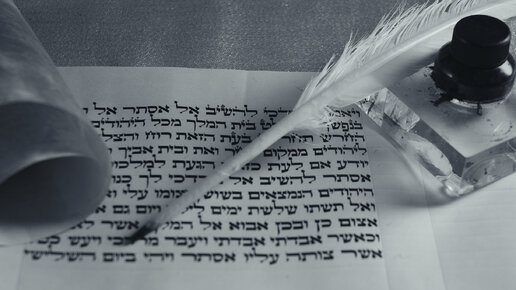 להשיב אל אסתר אל
בית המלך מכל היהודים
החרש בעת הזאת רוח
ליהודים ממקום אחר ואת ובית אביך
יודע אם לעת הגעת למלכות
אסתר להשיב אל מרדכי לך
היהודים הנמצאים בשושן וצומו עלי
ואל תשתו שלשת ימים ויום גם
אצום כן ובכן אבוא אל המלך
וכאשר אבדתי אבדתי ויעבר מרדכי ויעש
אשר צותה עליו אסתר ויהי ביום השלישי